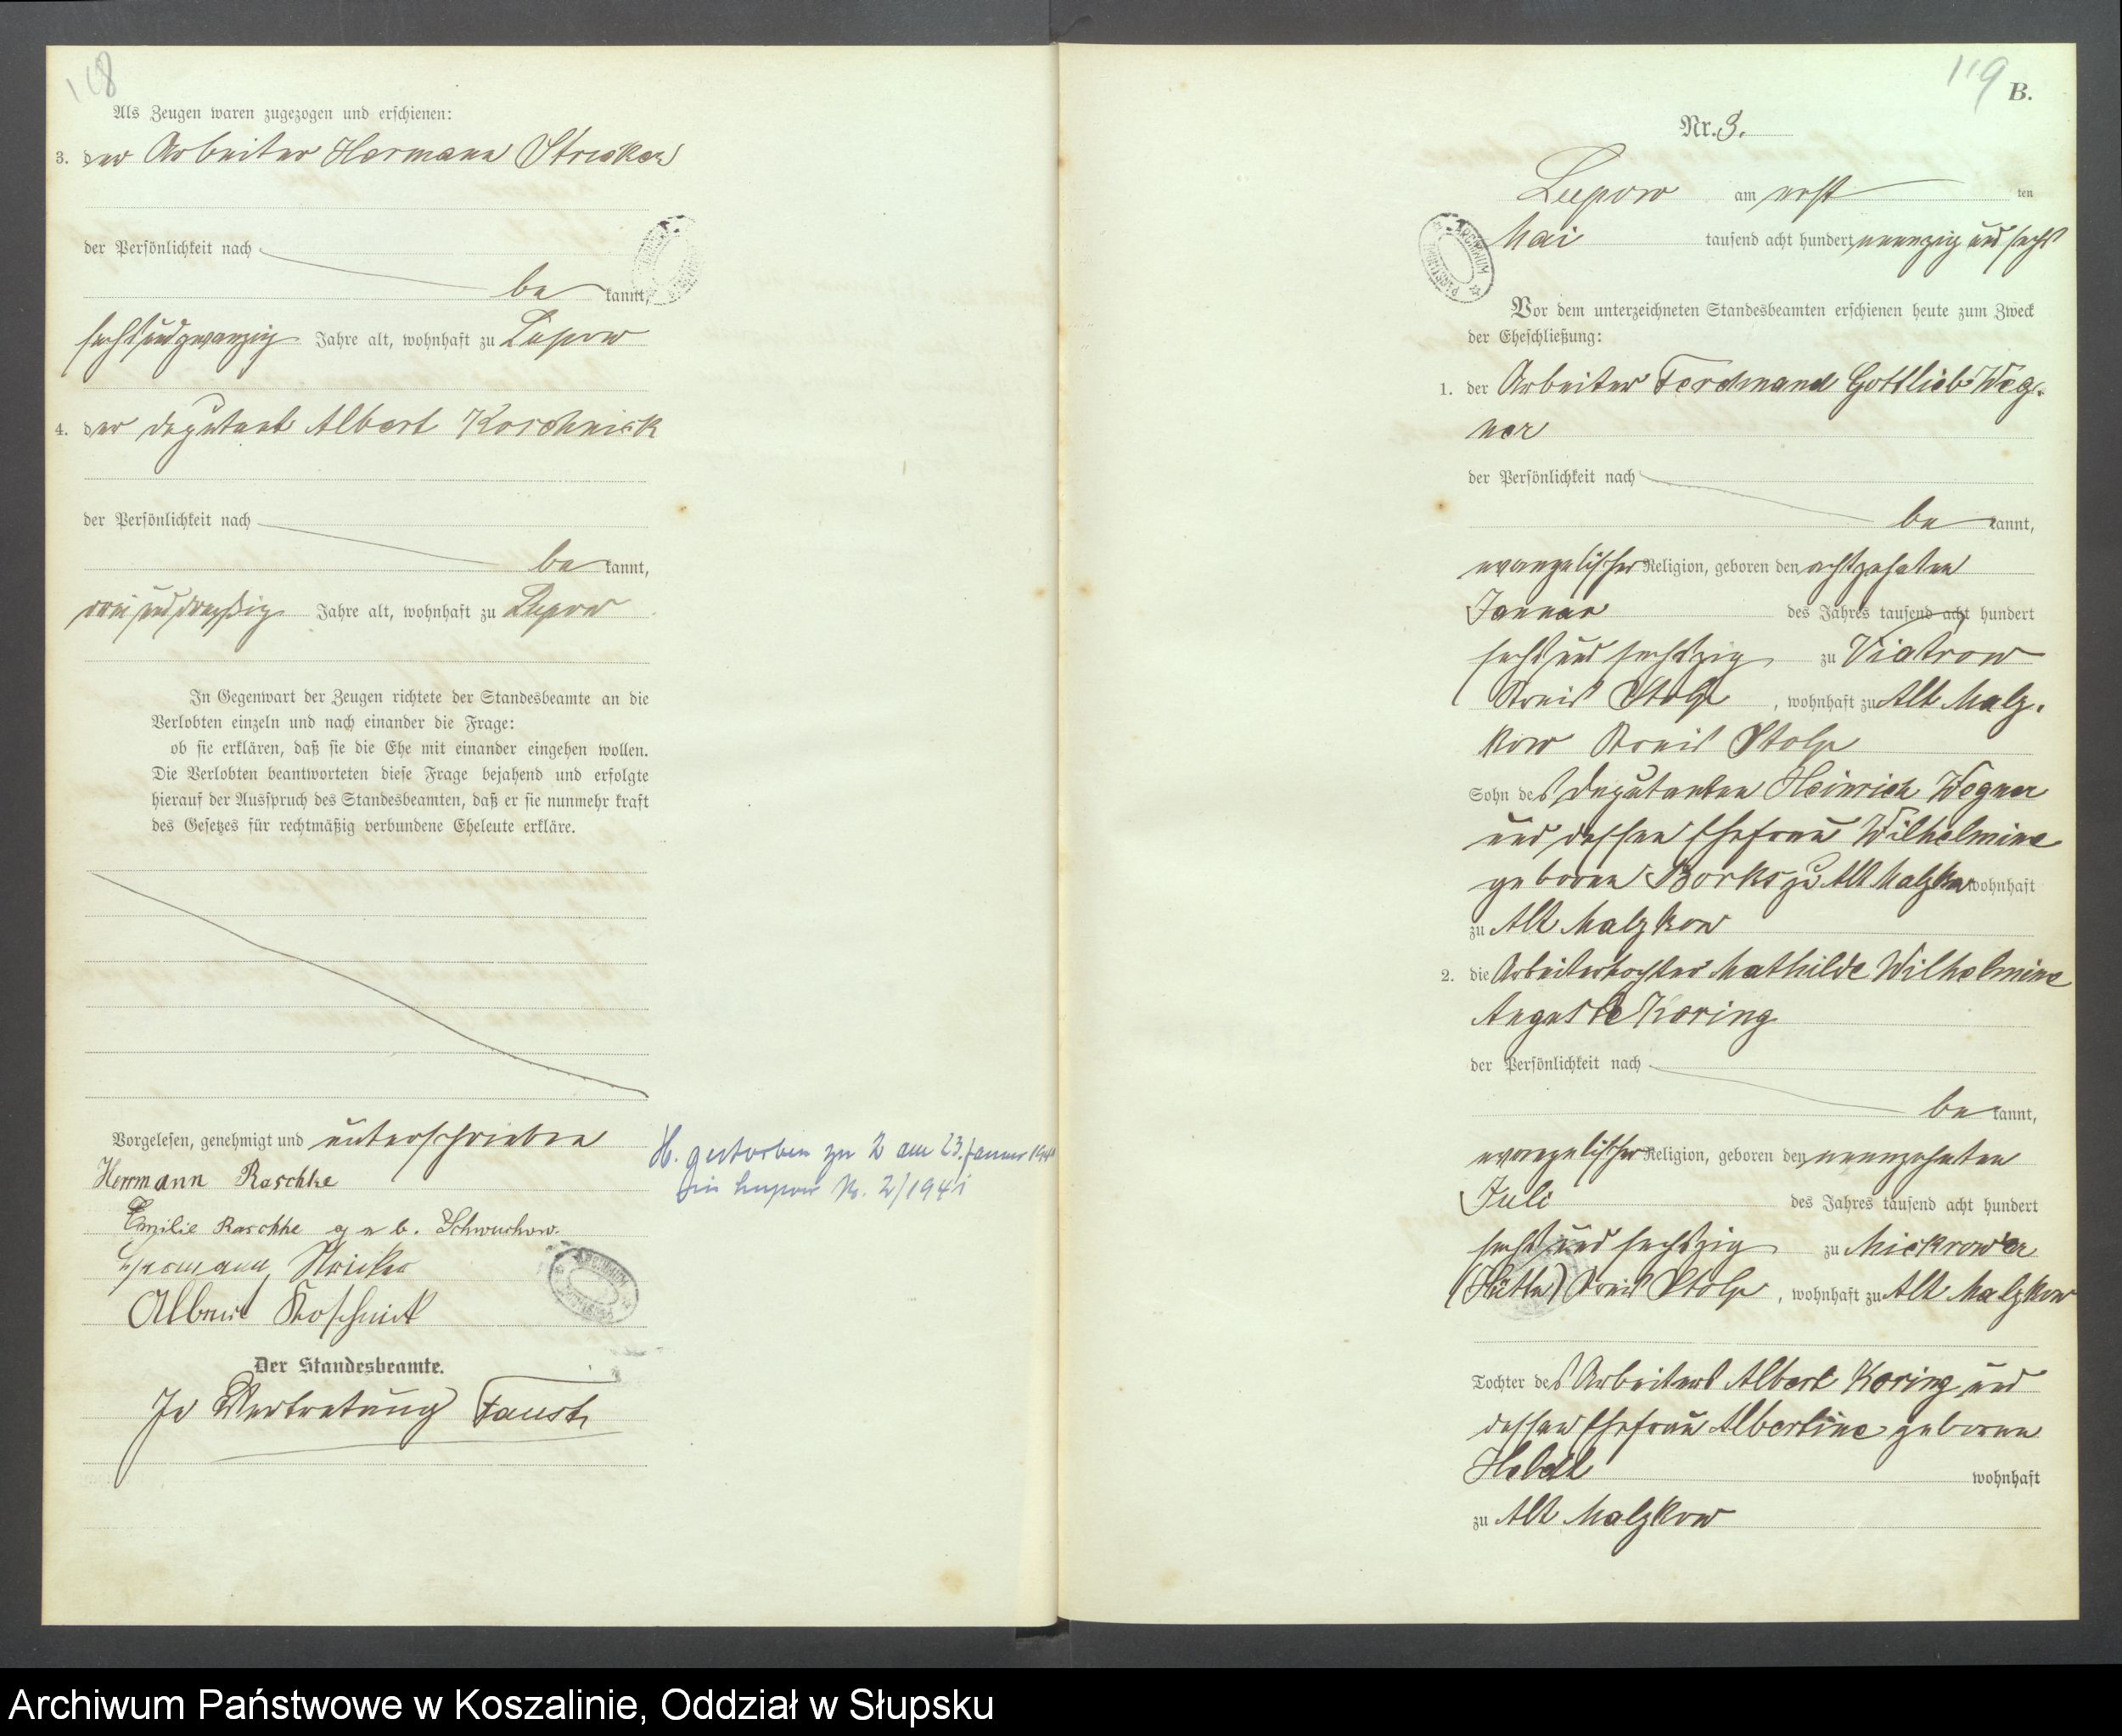 118
Als Zeugen waren zugezogen und erschienen:
3. der Arbeiter Hermann Stricker
der Persönlichkeit nach
be kannt,
sechsundzwanzig Jahre alt, wohnhaft zu Lupow
4. der Deputant Albert Koschnick
der Persönlichkeit nach
be kannt,
dreiunddreißig Jahre alt, wohnhaft zu Lupow
In Gegenwart der Zeugen richtete der Standesbeamte an die
Verlobten einzeln und nach einander die Frage:
ob sie erklären, daß sie die Ehe mit einander eingehen wollen.
Die Verlobten beantworteten diese Frage bejahend und erfolgte
hierauf der Ausspruch des Standesbeamten, daß er sie nunmehr kraft
des Gesetzes für rechtmäßig verbundene Eheleute erkläre.
Vorgelesen, genehmigt und unterschrieben
Herrmann Raschke
Emilie Raschke geb. Schwuchow.
Hermann Stricker
Albert Koschnick
Der Standesbeamte.
In Vertretung Faust
H. gestorben zu 2 am 23. Januar 1941
in Lupow Nr. 2/1941
119
B.
Nr. 3.
Lupow am erst ten
Mai tausend acht hundert neunzig und sechs
Vor dem unterzeichneten Standesbeamten erschienen heute zum Zweck
der Eheschließung:
1. der Arbeiter Ferdinand Gottlieb Weg-
ner
der Persönlichkeit nach
be kannt,
evangelischer Religion, geboren den achtzehnten
Januar des Jahres tausend acht hundert
sechs und sechszig zu Viatrow
Kreis Stolp, wohnhaft zu Alt Malz-
kow Kreis Stolp
Sohn des Deputanten Heinrich Wegner
und dessen Ehefrau Wilhelmine
geboren Borks zu Alt Malzkow wohnhaft
zu Alt Malzkow
2. die Arbeitertochter Mathilde Wilhelmine
Auguste Koring
der Persönlichkeit nach
be kannt,
evangelischer Religion, geboren den neunzehnten
Juli des Jahres tausend acht hundert
sechs und sechszig zu Mickrow'er
(Hütte) Kreis Stolp, wohnhaft zu Alt Malzkow
Tochter des Arbeiters Albert Koring und
dessen Ehefrau Albertine geboren
wohnhaft
zu Alt Malzkow
Archiwum Państwowe w Koszalinie, Oddział w Słupsku